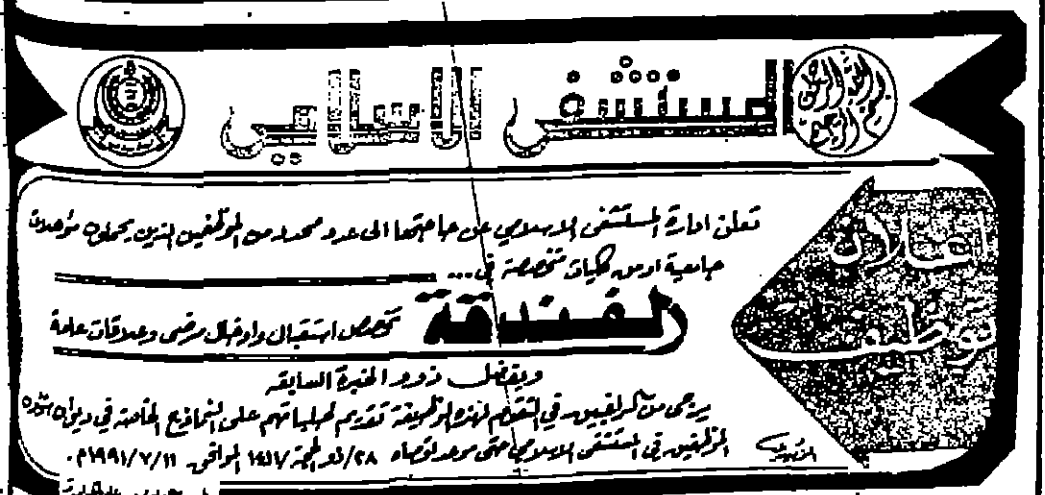 المستشفى الإسلامي
إعلان
توظيف
تعلن ادارة المستشفى الاسلامي عن حاجتها الى عدد محدد من الموظفين الذين يحملون مؤهلات
جامعية او من كليات متخصصة في ...
الفندقة
تخصص استقبال وادخال مرضى وعلاقات عامة
ويفضل ذوو الخبرة السابقة
يرجى من الراغبين في التقدم لهذه الوظيفة تقديم طلباتهم على النماذج الخاصة في ديوان شؤون
الموظفين في المستشفى الاسلامي حتى موعد اقصاه ٢٨/ذو الحجة/ الموافق ١٩٩١/٧/١١م.